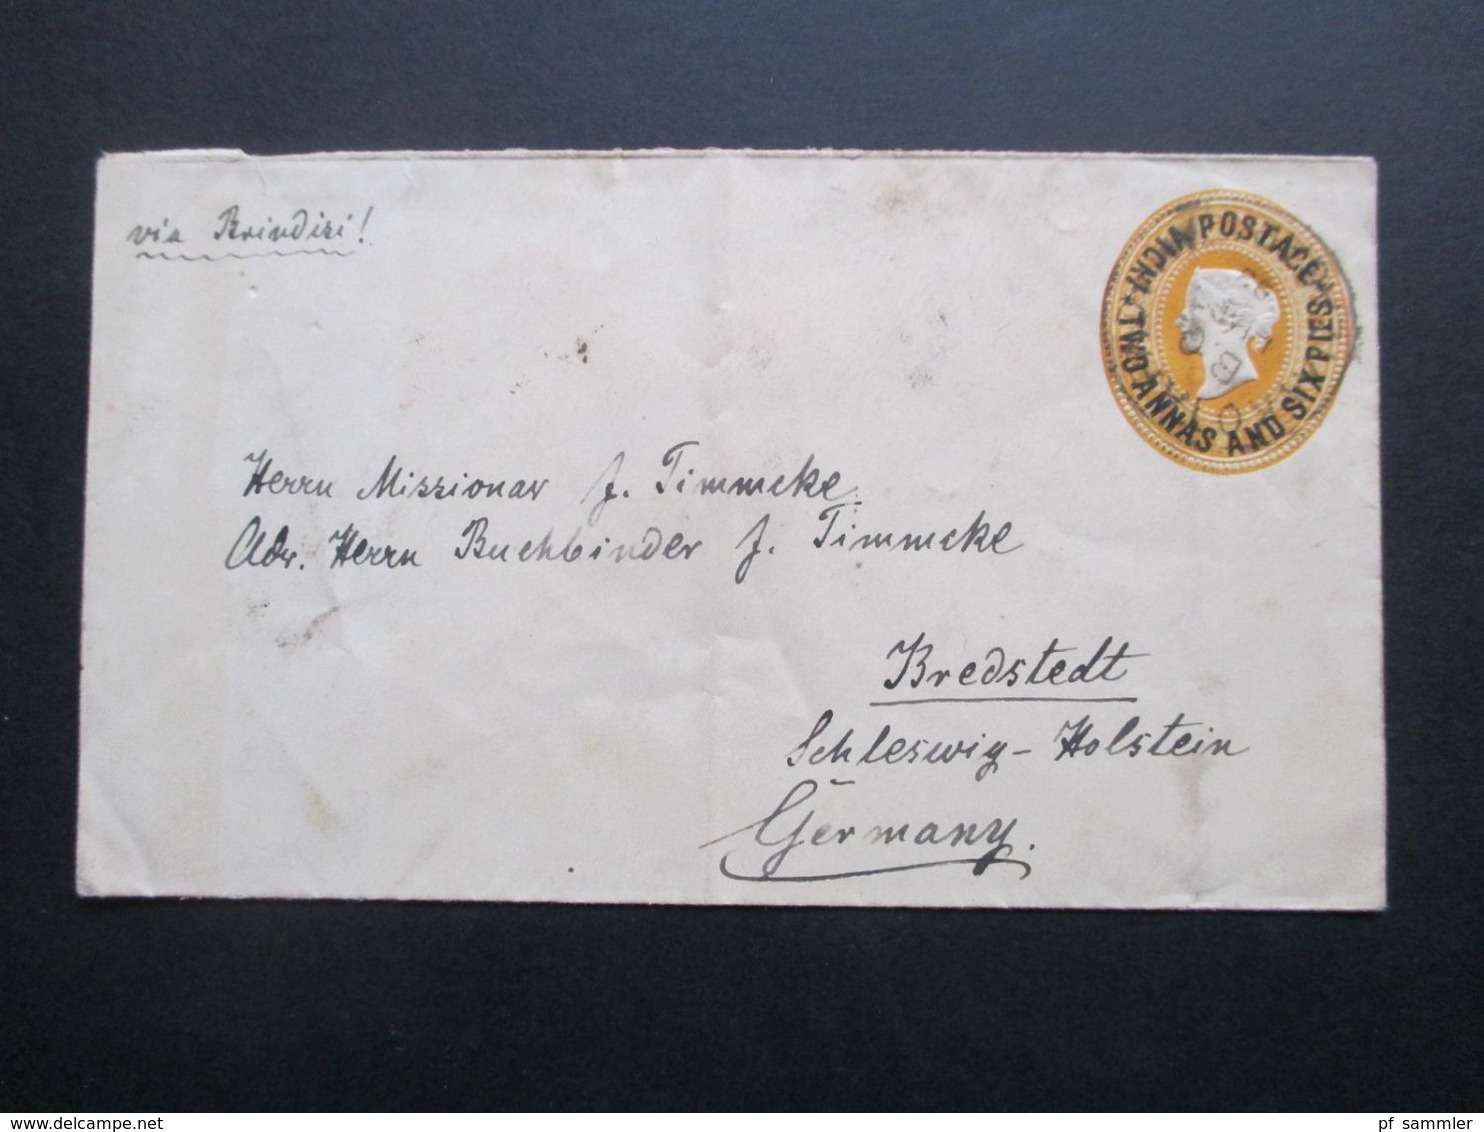 via Brindisi!
INDIA POSTAGE
TWO ANNAS AND SIX PIES
Herrn Missionar J. Timmcke
Adr. Herrn Buchbinder J. Timmcke
Bredstedt
Schleswig-Holstein
Germany.
pf sammler
www.delcampe.net